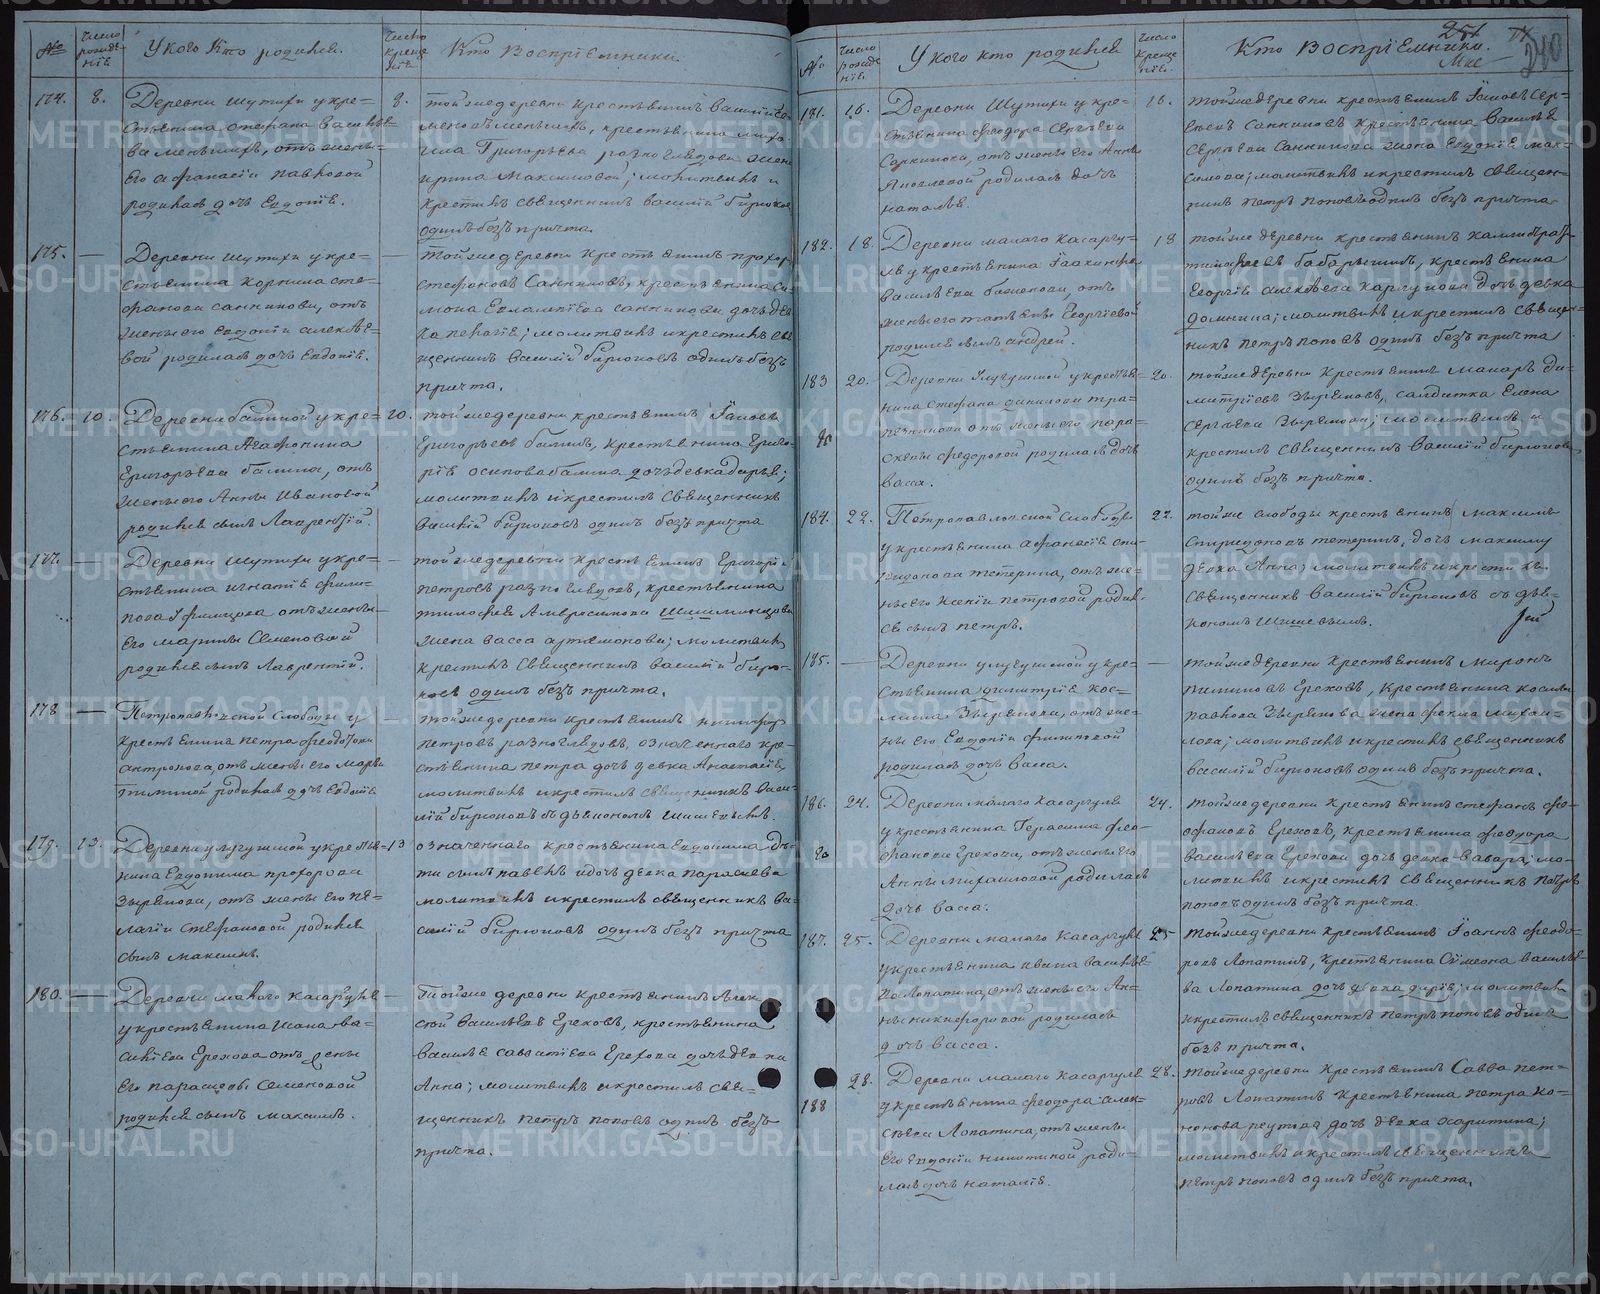 №
Число рожденїѣ.
У кого Кто родился.
Число крещенїѣ.
Кто Воспрїемники.
174.
8.
Деревни Шутихи у кре=
стьянина Стефана Василье=
ва Меньшихъ, отъ жены
его Афанасіи Павловой
родилась дочь Евдокіѣ.
8.
той же деревни крестьянинъ Василій Се=
меновъ Меньшихъ, крестьянина Миха=
ила Григорьева Разногледова жена
Ирина Максимовой; молитвилъ и
крестилъ священникъ Василій Бирюковъ
одинъ безъ причта.
175.
—
Деревни Шутихи у кре=
стьянина Корнила Сте=
фанова Санникова, отъ
жены его Евдокіи Алексѣе=
вой родилась дочь Евдокіѣ.
—
той же деревни крестьянинъ Прохоръ
Стефановъ Санниковъ, крестьянина Си=
мона Евлампіева Санникова дочь дев=
ка; молитвилъ и крестилъ свя=
щенникъ Василій Бирюковъ одинъ безъ
причта.
176.
10.
Деревни Балиной у кре=
стьянина Агафонина
Григорьева Балина, отъ
жены его Анны Ивановой
родился сынъ Лаврентій.
10.
той же деревни крестьянинъ Іаковъ
Григорьевъ Балинъ, крестьянина Григо=
ріѣ Осипова Балина дочь девка Дарья;
молитвилъ и крестилъ священникъ
Василій Бирюковъ одинъ безъ причта
177.
—
Деревни Шутихи у кре=
стьянина Игнатіѣ Фили=
пова отъ жены
его Марины Семеновой
родился сынъ Лаврентій.
—
той же деревни крестьянинъ Григорій
Петровъ Разногледовъ, крестьянина
Тимофея Амвросимова
жена Васса Артемонова; молитвилъ
крестилъ священникъ Василій Бирю=
ковъ одинъ безъ причта.
178
—
Петропавловской слободы у
крестьянина Петра Феодотова
Антропова, отъ жены его Марьи
родилась дочь Евдокіѣ
—
той же деревни крестьянинъ Никифоръ
Петровъ Разногледовъ, означеннаго кре=
стьянина Петра дочь девка Анастасіѣ,
молитвилъ и крестилъ священникъ Васи=
лій Бирюковъ съ дьякономъ Шишевымъ.
179.
13.
Деревни Улугушной у крестья=
нина Евдокима Прохорова
Зырянова, отъ жены его Пе=
лагіи Стефановой родился
сынъ Максимъ.
13
означеннаго крестьянина Евдокима дѣ=
ти сынъ Павелъ и дочь девка Парасцева
молитвилъ и крестилъ священникъ Ва=
силій Бирюковъ одинъ безъ причта
180.
—
Деревни Малаго Касаргуля
у крестьянина Ивана Ва=
сильева Ерехова отъ жены
его Парасцевы Семеновой
родился сынъ Максимъ.
—
Тойже деревни крестьянинъ Алек
сѣй Васильевъ Ереховъ, крестьянина
Василіѣ Савватіева Ерехова дочь девка
Анна; молитвилъ и крестилъ свя=
щенникъ Петръ Поповъ одинъ безъ
причта.
№
Число рожденїѣ.
У кого кто родился
Число крещенїѣ.
Кто Воспрїемники.
251
240
181.
16.
Деревни Шутихи у кре=
стьянина Феодора Сергѣева
Санникова, отъ жены его Анны
Яковлевой родилась дочь
Наталья.
16.
той же деревни крестьянинъ Іаковъ Сер=
гѣевъ Санниковъ крестьянина Василіѣ
Сергѣева Санникова жена Евдокіѣ Мак=
симова; молитвилъ и крестилъ священ=
никъ Петръ Поповъ одинъ безъ причта
182.
18.
Деревни Малаго Касаргу=
ля у крестьянина Іоакинфа
Васильева, отъ
жены его Татьяны Георгіевой
родился сынъ Андрей.
18
той же деревни крестьянинъ
Тимофеевъ Бабарыкинъ, крестьянина
Георгіѣ Алексѣева Карпукова дочь девка
Домнина; молитвилъ и крестилъ священ=
никъ Петръ Поповъ одинъ безъ причта
183
20.
Деревни Улугушной у крестья=
нина Стефана Данилова Тра=
пезникова отъ жены его Пара=
скевы Федоровой родилась дочь
Васса.
20.
той же деревни крестьянинъ Макаръ Ди=
митріевъ Зыряновъ, салдатка Елена
Сергѣева Зырянова; молитвилъ и
крестилъ священникъ Василій Бирюковъ
одинъ безъ причта.
184.
22.
Петропавловской слободы
у крестьянина Афанасіѣ Спи=
ридонова Тетерина, отъ же=
ны его Ксеніи Петровой родил=
сѣ сынъ Петръ.
22.
той же слободы крестьянинъ Максимъ
Спиридоновъ Тетеринъ, дочь Максима
девка Анна; молитвилъ и крестилъ
священникъ Василій Бирюковъ съ дья=
кономъ Шишевымъ.
185.
—
Деревни Улугушной у кре=
стьянина Димитріѣ Кос=
мина Зырянова, отъ же=
ны его Евдокіи Филиповой
родилась дочь Васса.
—
той же деревни крестьянинъ Миронъ
Пименовъ Ереховъ, крестьянина Косьмы
Павлова Зырянова жена Фекла Михаи=
лова; молитвилъ и крестилъ священникъ
Василій Бирюковъ одинъ безъ причта.
186.
24.
Деревни Малаго Касаргуля
у крестьянина Герасима Фео=
фанова Ерехова, отъ жены его
Анны Михаиловой родилась
дочь Васса.
24.
той же деревни крестьянинъ Стефанъ Фе=
офановъ Ереховъ, крестьянина Феодора
Васильева Ерехова дочь девка Вавара; мо=
литвилъ и крестилъ священникъ Петръ
Поповъ одинъ безъ причта.
187.
25.
Деревни Малаго Касаргуля
у крестьянина Ивана Василье=
ва Лопатина, отъ жены его Ан=
ны Никифоровой родилась
дочь Васса.
25
той же деревни крестьянинъ Іоаннъ Феодо=
ровъ Лопатинъ, крестьянина Сѵмеона Василье=
ва Лопатина дочь девка Даріѣ; молитвилъ
и крестилъ священникъ Петръ Поповъ одинъ
безъ причта.
188
28.
Деревни Малаго Касаргуля
у крестьянина Феодора Алек=
сѣева Лопатина, отъ жены
его Евдокіи Никитиной роди=
лась дочь Наталіѣ.
28.
той же деревни крестьянинъ Савва Пет=
ровъ Лопатинъ крестьянина Петра Ко=
нонова Реутова дочь девка Харитина;
молитвилъ и крестилъ священникъ
Петръ Поповъ одинъ безъ причта.
METRIKI.GASO-URAL.RU